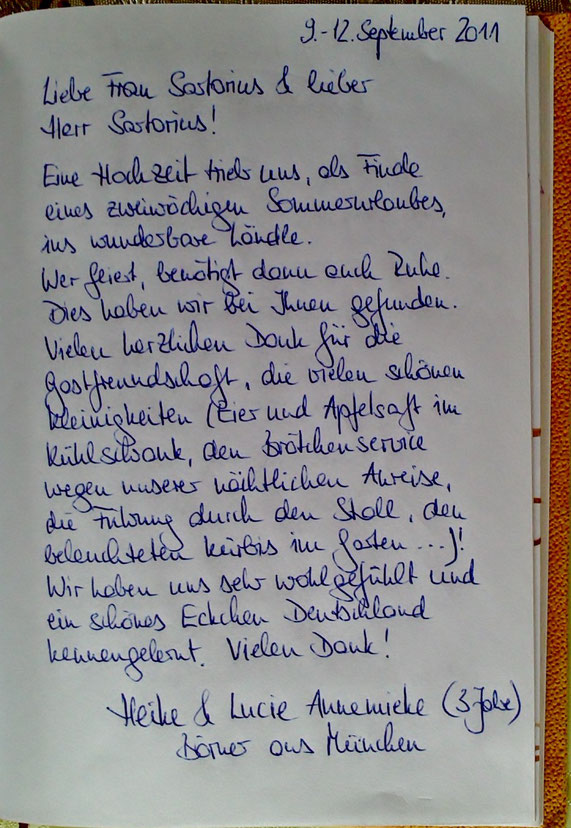 9.-12. September 2011
Liebe Frau Sartorius & lieber
Herr Sartorius!
Eine Hochzeit trieb uns, als Finale
eines zweiwöchigen Sommerurlaubes,
ins wunderbare Ländle.
Wer feiert, benötigt dann auch Ruhe.
Dies haben wir bei Ihnen gefunden.
Vielen herzlichen Dank für die
Gastfreundschaft, die vielen schönen
Kleinigkeiten (Eier und Apfelsaft im
Kühlschrank, den Brötchenservice
wegen unserer nächtlichen Anreise,
die Führung durch den Stall, den
beleuchteten Kürbis im Garten ...)!
Wir haben uns sehr wohlgefühlt und
ein schönes Eckchen Deutschland
kennengelernt. Vielen Dank!
Heike & Lucie Annemieke (3 Jahre)
Börner aus München